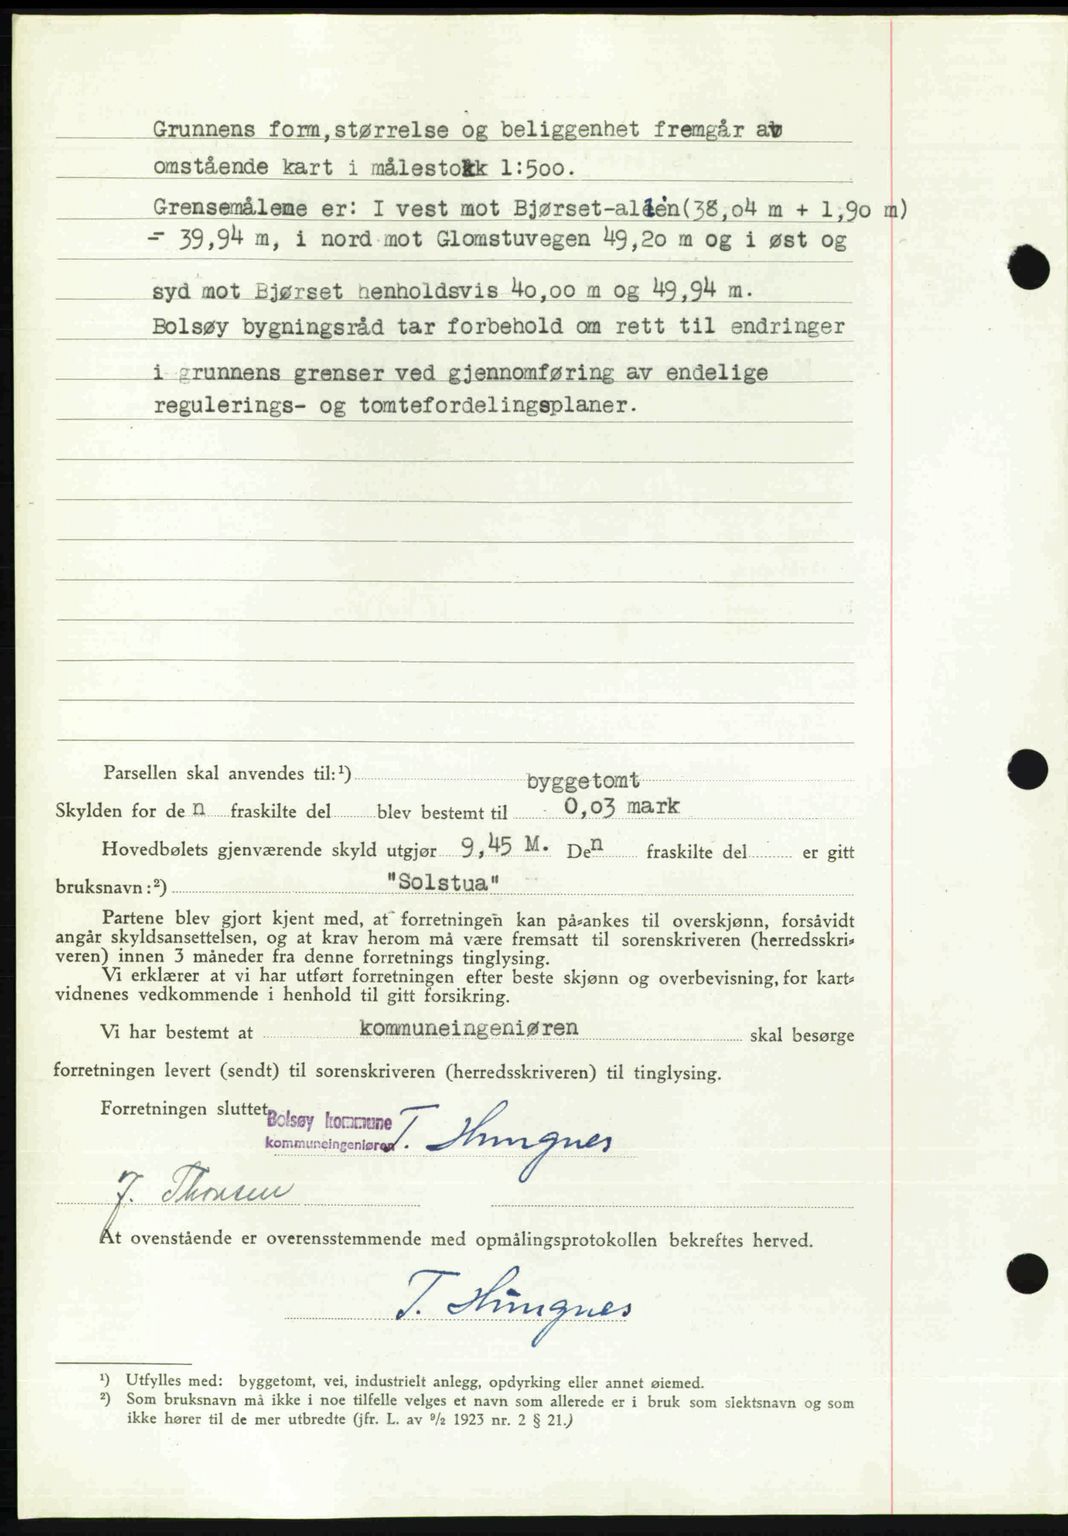 Grunnens form, størrelse og beliggenhet fremgår av
omstående kart i målestokk 1:500.
Grensemålene er: I vest mot Bjørset-allén(38,04 m + 1,90 m)
= 39,94 m, i nord mot Glomstuvegen 49,20 m og i øst og
syd mot Bjørset henholdsvis 40,00 m og 49,94 m.
Bolsøy bygningsråd tar forbehold om rett til endringer
i grunnens grenser ved gjennomføring av endelige
regulerings- og tomtefordelingsplaner.
Parsellen skal anvendes til:¹) byggetomt
Skylden for den fraskilte del blev bestemt til 0,03 mark
Hovedbølets gjenværende skyld utgjør 9,45 M. Den fraskilte del er gitt
bruksnavn:²) "Solstua"
Partene blev gjort kjent med, at forretningen kan på=ankes til overskjønn, forsåvidt
angår skyldsansettelsen, og at krav herom må være fremsatt til sorenskriveren (herredsskri=
veren) innen 3 måneder fra denne forretnings tinglysing.
Vi erklærer at vi har utført forretningen efter beste skjønn og overbevisning, for kart=
vidnenes vedkommende i henhold til gitt forsikring.
Vi har bestemt at kommuneingeniøren skal besørge
forretningen levert (sendt) til sorenskriveren (herredsskriveren) til tinglysing.
Forretningen sluttet.
Bolsøy kommune
kommuneingeniøren T. Hungnes
J. Thorsen
At ovenstående er overensstemmende med opmålingsprotokollen bekreftes herved.
T. Hungnes
¹) Utfylles med: byggetomt, vei, industrielt anlegg, opdyrking eller annet øiemed.
²) Som bruksnavn må ikke i noe tilfelle velges et navn som allerede er i bruk som slektsnavn og som
ikke hører til de mer utbredte (jfr. L. av 9/2 1923 nr. 2 § 21.)